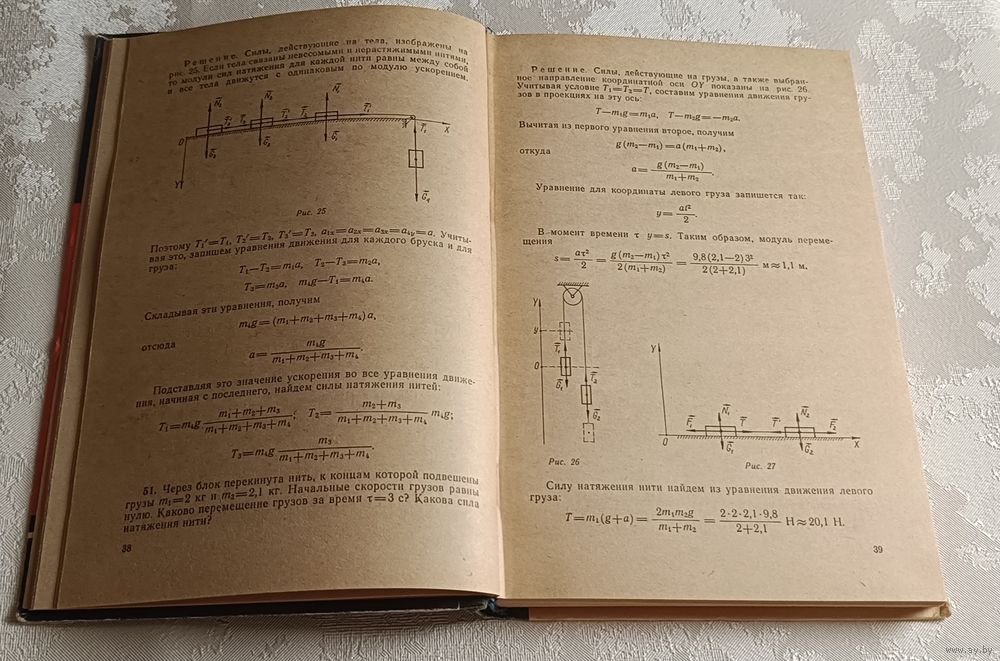 Решение. Силы, действующие на тела, изображены на
рис. 25. Если тела связаны невесомыми и нерастяжимыми нитями,
то модули сил натяжения для каждой нити равны между собой
и все тела движутся с одинаковым по модулю ускорением.
N₃ N₂ N₁
T₃' T₃ T₂' T₂ T₁
O X
G₃ G₂ G₁
T₁'
Y
G₄
Рис. 25
Поэтому T₁'=T₁, T₂'=T₂, T₃'=T₃, a₁ₓ=a₂ₓ=a₃ₓ=a₄ᵧ=a. Учиты-
вая это, запишем уравнения движения для каждого бруска и для
груза:
T₁—T₂=m₁a, T₂—T₃=m₂a,
T₃=m₃a, m₄g—T₁=m₄a.
Складывая эти уравнения, получим
m₄g=(m₁+m₂+m₃+m₄)a,
отсюда
a= m₄g / (m₁+m₂+m₃+m₄).
Подставляя это значение ускорения во все уравнения движе-
ния, начиная с последнего, найдем силы натяжения нитей:
T₁=m₄g (m₁+m₂+m₃)/(m₁+m₂+m₃+m₄); T₂= (m₂+m₃)/(m₁+m₂+m₃+m₄) m₄g;
T₃=m₄g m₃/(m₁+m₂+m₃+m₄).
51. Через блок перекинута нить, к концам которой подвешены
грузы m₁=2 кг и m₂=2,1 кг. Начальные скорости грузов равны
нулю. Каково перемещение грузов за время τ=3 с? Какова сила
натяжения нити?
38
Решение. Силы, действующие на грузы, а также выбран-
ное направление координатной оси OY показаны на рис. 26.
Учитывая условие T₁=T₂=T, составим уравнения движения гру-
зов в проекциях на эту ось:
T—m₁g=m₁a, T—m₂g=—m₂a.
Вычитая из первого уравнения второе, получим
g(m₂—m₁)=a(m₁+m₂),
откуда
a= g(m₂—m₁)/(m₁+m₂).
Уравнение для координаты левого груза запишется так:
y= at²/2.
В момент времени τ y=s. Таким образом, модуль переме-
щения
s= aτ²/2 = g(m₂—m₁)τ²/2(m₁+m₂) = 9,8(2,1—2)3²/2(2+2,1) м≈1,1 м.
Y
y
T₁
O
G₁ T₂
G₂
Рис. 26
Y
N₁ N₂
F₁ T T' F₂
O X
G₁ G₂
Рис. 27
Силу натяжения нити найдем из уравнения движения левого
груза:
T=m₁(g+a)= 2m₁m₂g/(m₁+m₂) = 2·2·2,1·9,8/(2+2,1) Н≈20,1 Н.
39
www.ay.by